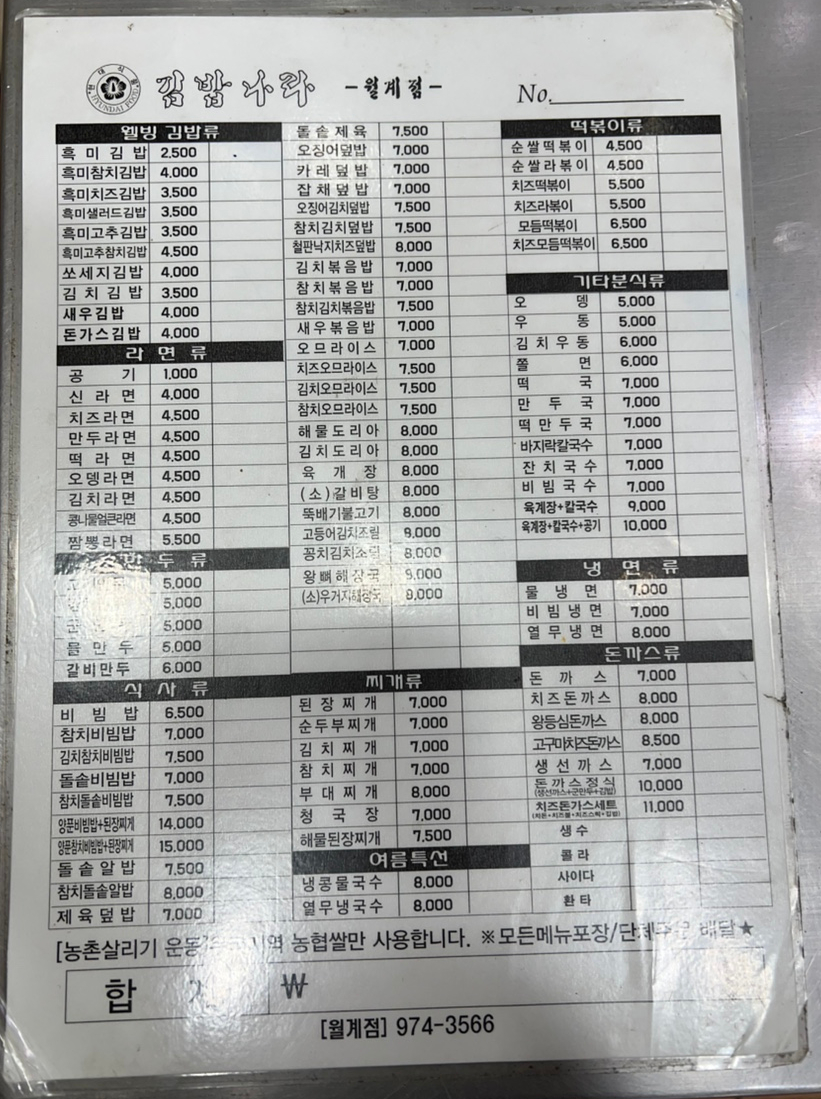 HYUNDAI FOOD
김밥나라 -월계점- No.
웰빙 김밥류
흑미김밥 2,500
흑미참치김밥 4,000
흑미치즈김밥 3,500
흑미샐러드김밥 3,500
흑미고추김밥 3,500
흑미고추참치김밥 4,500
쏘세지김밥 4,000
김치김밥 3,500
새우김밥 4,000
돈가스김밥 4,000
라면류
공기 1,000
신라면 4,000
치즈라면 4,500
만두라면 4,500
떡라면 4,500
오뎅라면 4,500
김치라면 4,500
콩나물얼큰라면 4,500
짬뽕라면 5,500
만두류
5,000
5,000
5,000
물만두 5,000
갈비만두 6,000
식사류
비빔밥 6,500
참치비빔밥 7,000
김치참치비빔밥 7,500
돌솥비빔밥 7,000
참치돌솥비빔밥 7,500
양푼비빔밥+된장찌개 14,000
양푼참치비빔밥+된장찌개 15,000
돌솥알밥 7,500
참치돌솥알밥 8,000
제육덮밥 7,000
돌솥제육 7,500
오징어덮밥 7,000
카레덮밥 7,000
잡채덮밥 7,000
오징어김치덮밥 7,500
참치김치덮밥 7,500
철판낙지치즈덮밥 8,000
김치볶음밥 7,000
참치볶음밥 7,000
참치김치볶음밥 7,500
새우볶음밥 7,000
오므라이스 7,000
치즈오므라이스 7,500
김치오므라이스 7,500
참치오므라이스 7,500
해물도리아 8,000
김치도리아 8,000
육개장 8,000
(소)갈비탕 8,000
뚝배기불고기 8,000
고등어김치조림 8,000
꽁치김치조림 8,000
왕뼈해장국 8,000
(소)우거지해장국 8,000
찌개류
된장찌개 7,000
순두부찌개 7,000
김치찌개 7,000
참치찌개 7,000
부대찌개 8,000
청국장 7,000
해물된장찌개 7,500
여름특선
냉콩물국수 8,000
열무냉국수 8,000
떡볶이류
순쌀떡볶이 4,500
순쌀라볶이 4,500
치즈떡볶이 5,500
치즈라볶이 5,500
모듬떡볶이 6,500
치즈모듬떡볶이 6,500
기타분식류
오뎅 5,000
우동 5,000
김치우동 6,000
쫄면 6,000
떡국 7,000
만두국 7,000
떡만두국 7,000
바지락칼국수 7,000
잔치국수 7,000
비빔국수 7,000
육계장+칼국수 9,000
육계장+칼국수+공기 10,000
냉면류
물냉면 7,000
비빔냉면 7,000
열무냉면 8,000
돈까스류
돈까스 7,000
치즈돈까스 8,000
왕등심돈까스 8,000
고구마치즈돈까스 8,500
생선까스 7,000
돈까스정식 10,000
(생선까스+군만두+김밥)
치즈돈가스세트 11,000
생수
콜라
사이다
환타
[농촌살리기 운동 농협쌀만 사용합니다. ※모든메뉴포장/단체주문 배달★
합 ₩
[월계점] 974-3566